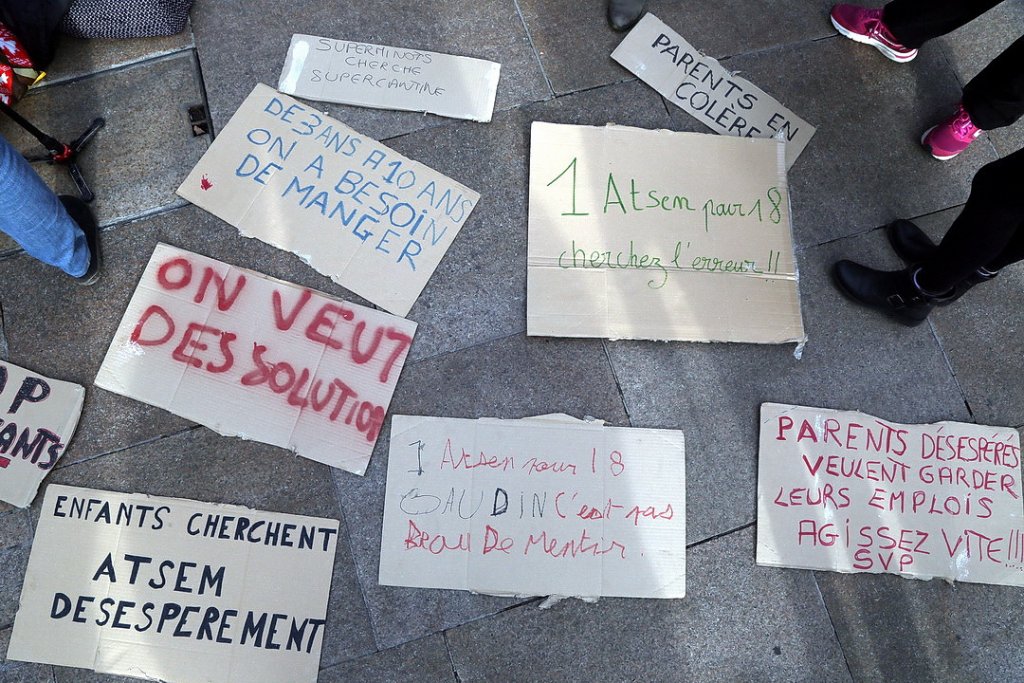 SUPERMINOTS
CHERCHE
SUPERCANTINE
PARENTS EN
COLÈRE
DE 3 ANS A 10 ANS
ON A BESOIN
DE MANGER
1 Atsem pour 18
cherchez l'erreur!!
ON VEUT
DES SOLUTION
OP
ANTS
1 Atsem pour 18
GAUDIN C'est pas
Beau De Mentir.
PARENTS DÉSESPÉRÉS
VEULENT GARDER
LEURS EMPLOIS
AGISSEZ VITE!!!
SVP
ENFANTS CHERCHENT
ATSEM
DESESPEREMENT